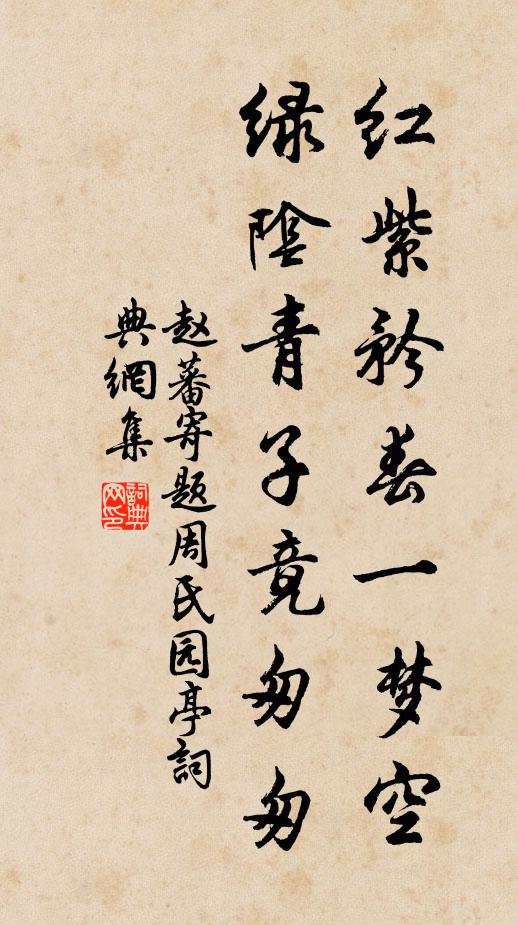 红紫矜春一梦空
绿陰青子竟匆匆
赵蕃寄题周氏园亭詞
典網集
詞典网印